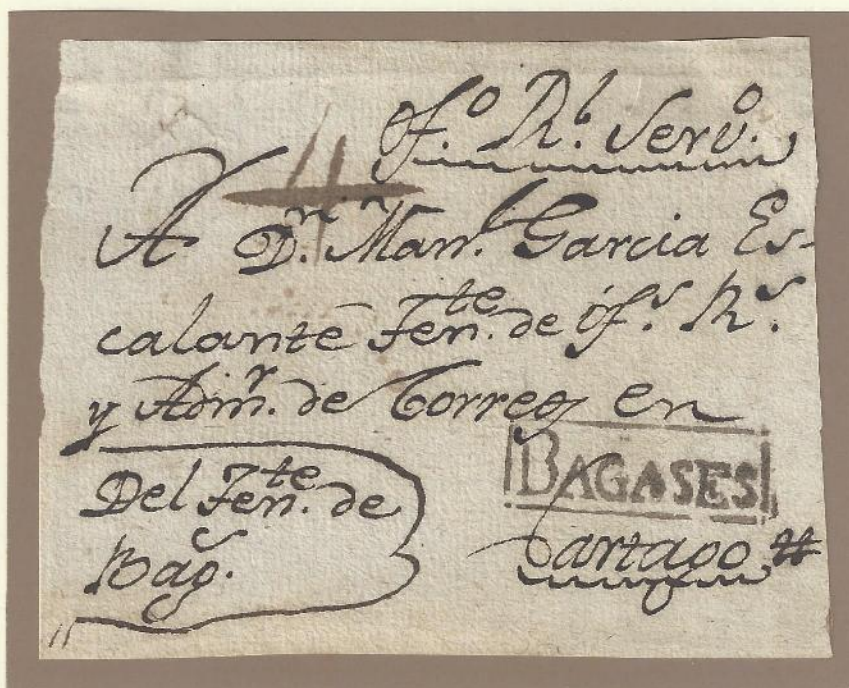 Of.º Rl. Servº.
4
A Dn. Manl. Garcia Es-
calante Tente. de Ofs. Rs.
y Admr. de Correos en
BAGASES
Del Tente. de
Bags.
Cartago